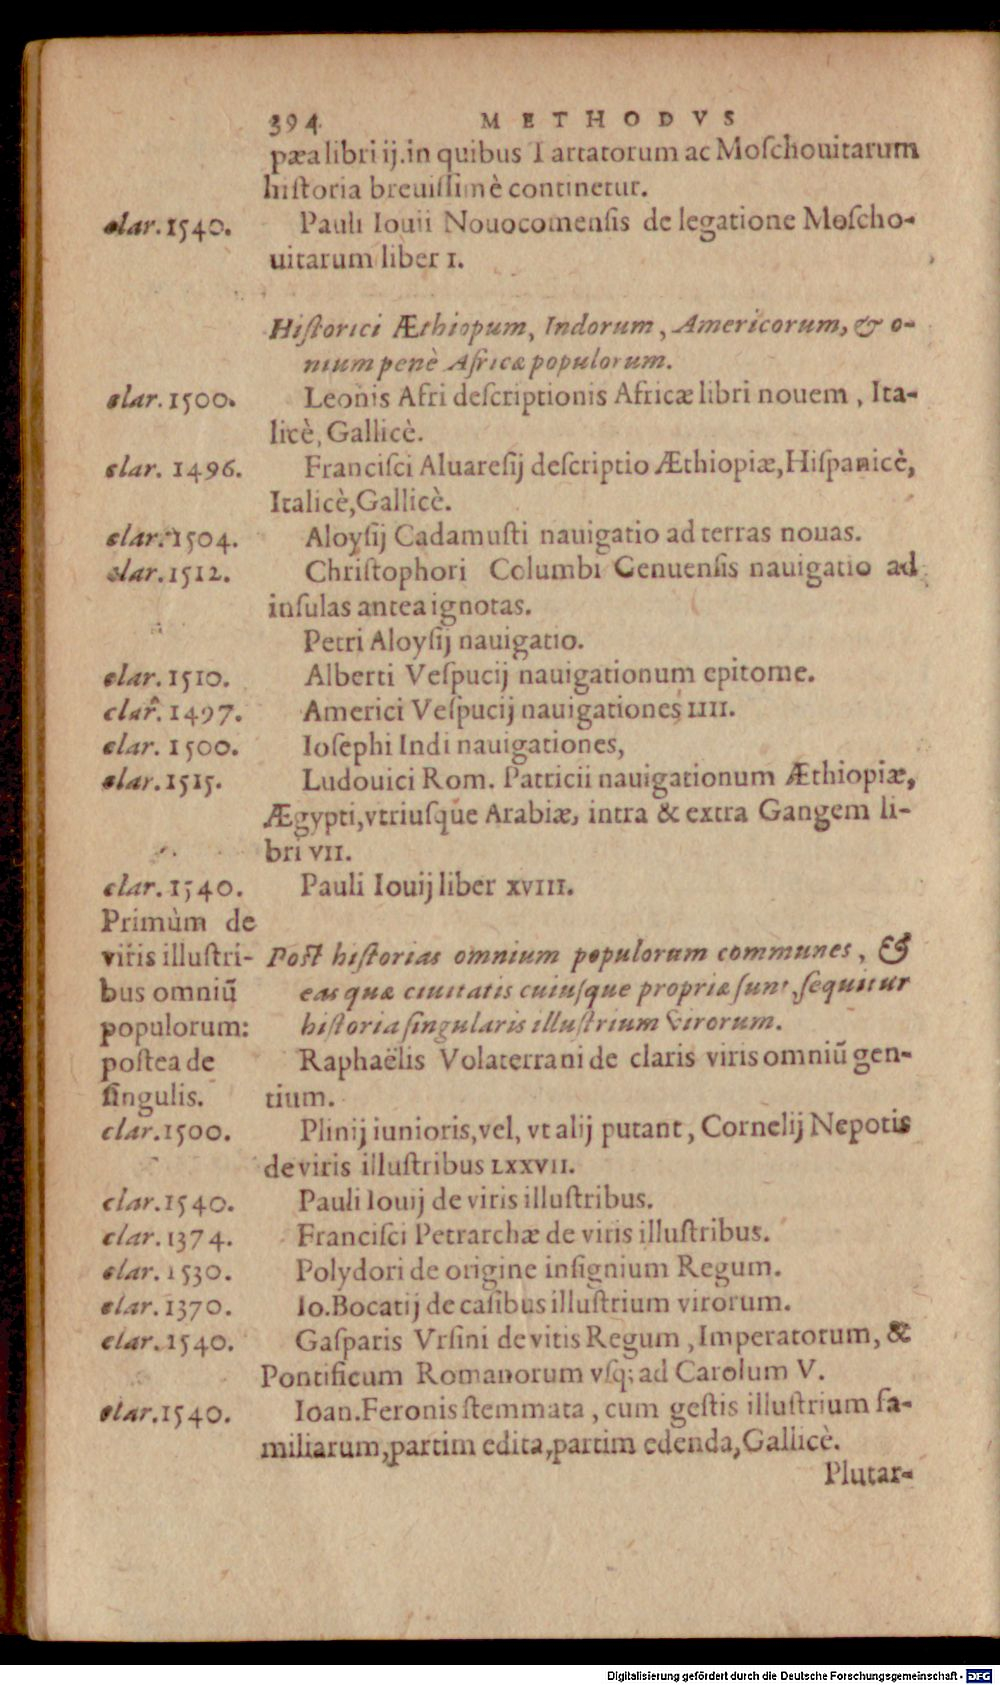 394 METHODVS
pæa libri ij. in quibus Tartarorum ac Moſchouitarum
hiſtoria breuiſſimè continetur.
clar. 1540. Pauli Iouii Nouocomenſis de legatione Moſcho-
uitarum liber I.
Hiſtorici Æthiopum, Indorum, Americorum, & o-
nium penè Africæ populorum.
clar. 1500. Leonis Afri deſcriptionis Africæ libri nouem, Ita-
licè, Gallicè.
clar. 1496. Franciſci Aluareſij deſcriptio Æthiopiæ, Hiſpanicè,
Italicè, Gallicè.
clar. 1504. Aloyſij Cadamuſti nauigatio ad terras nouas.
clar. 1512. Chriſtophori Columbi Genuenſis nauigatio ad
inſulas antea ignotas.
Petri Aloyſij nauigatio.
clar. 1510. Alberti Veſpucij nauigationum epitome.
clar. 1497. Americi Veſpucij nauigationes IIII.
clar. 1500. Ioſephi Indi nauigationes,
clar. 1515. Ludouici Rom. Patricii nauigationum Æthiopiæ,
Ægypti, vtriuſque Arabiæ, intra & extra Gangem li-
bri VII.
clar. 1540. Pauli Iouij liber XVIII.
Primùm de
viris illuſtri-
bus omniū
populorum:
poſtea de
ſingulis.
Poſt hiſtorias omnium populorum communes, &
eas quæ ciuitatis cuiuſque propriæ ſunt, ſequitur
hiſtoria ſingularis illuſtrium virorum.
Raphaëlis Volaterrani de claris viris omniū gen-
tium.
clar. 1500. Plinij iunioris, vel, vt alij putant, Cornelij Nepotis
de viris illuſtribus LXXVII.
clar. 1540. Pauli Iouij de viris illuſtribus.
clar. 1374. Franciſci Petrarchæ de viris illuſtribus.
clar. 1530. Polydori de origine inſignium Regum.
clar. 1370. Io. Bocatij de caſibus illuſtrium virorum.
clar. 1540. Gaſparis Vrſini de vitis Regum, Imperatorum, &
Pontificum Romanorum vſq; ad Carolum V.
clar. 1540. Ioan. Feronis ſtemmata, cum geſtis illuſtrium fa-
miliarum, partim edita, partim edenda, Gallicè.
Plutar-
Digitalisierung gefördert durch die Deutsche Forschungsgemeinschaft - DFG